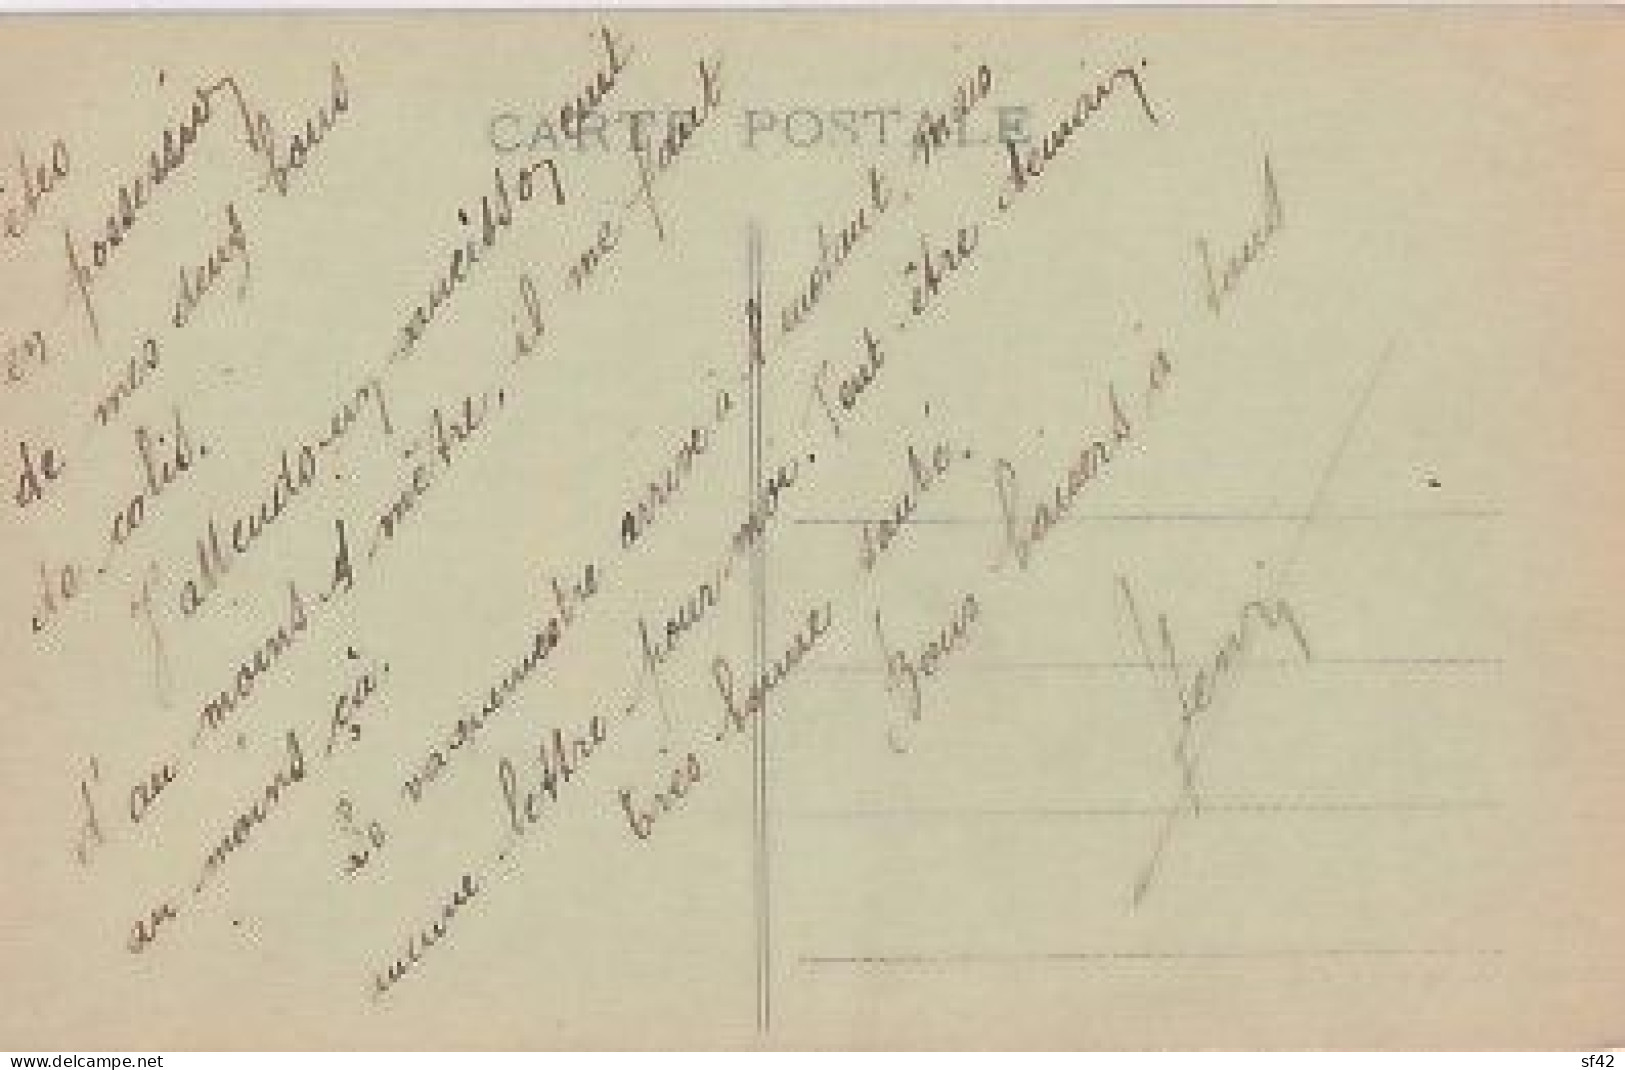 CARTE POSTALE
êtes
en possession
de mes deux bons
de colis.
J'attends un saucisson qui
d'au moins 1 mètre, il me faut
au moins çà.
Le vaguemestre arrive à l'instant, mais
aucune lettre pour moi. Peut-être demain.
très bonne santé.
Bons baisers à tous
Henry
www.delcampe.net
sf42